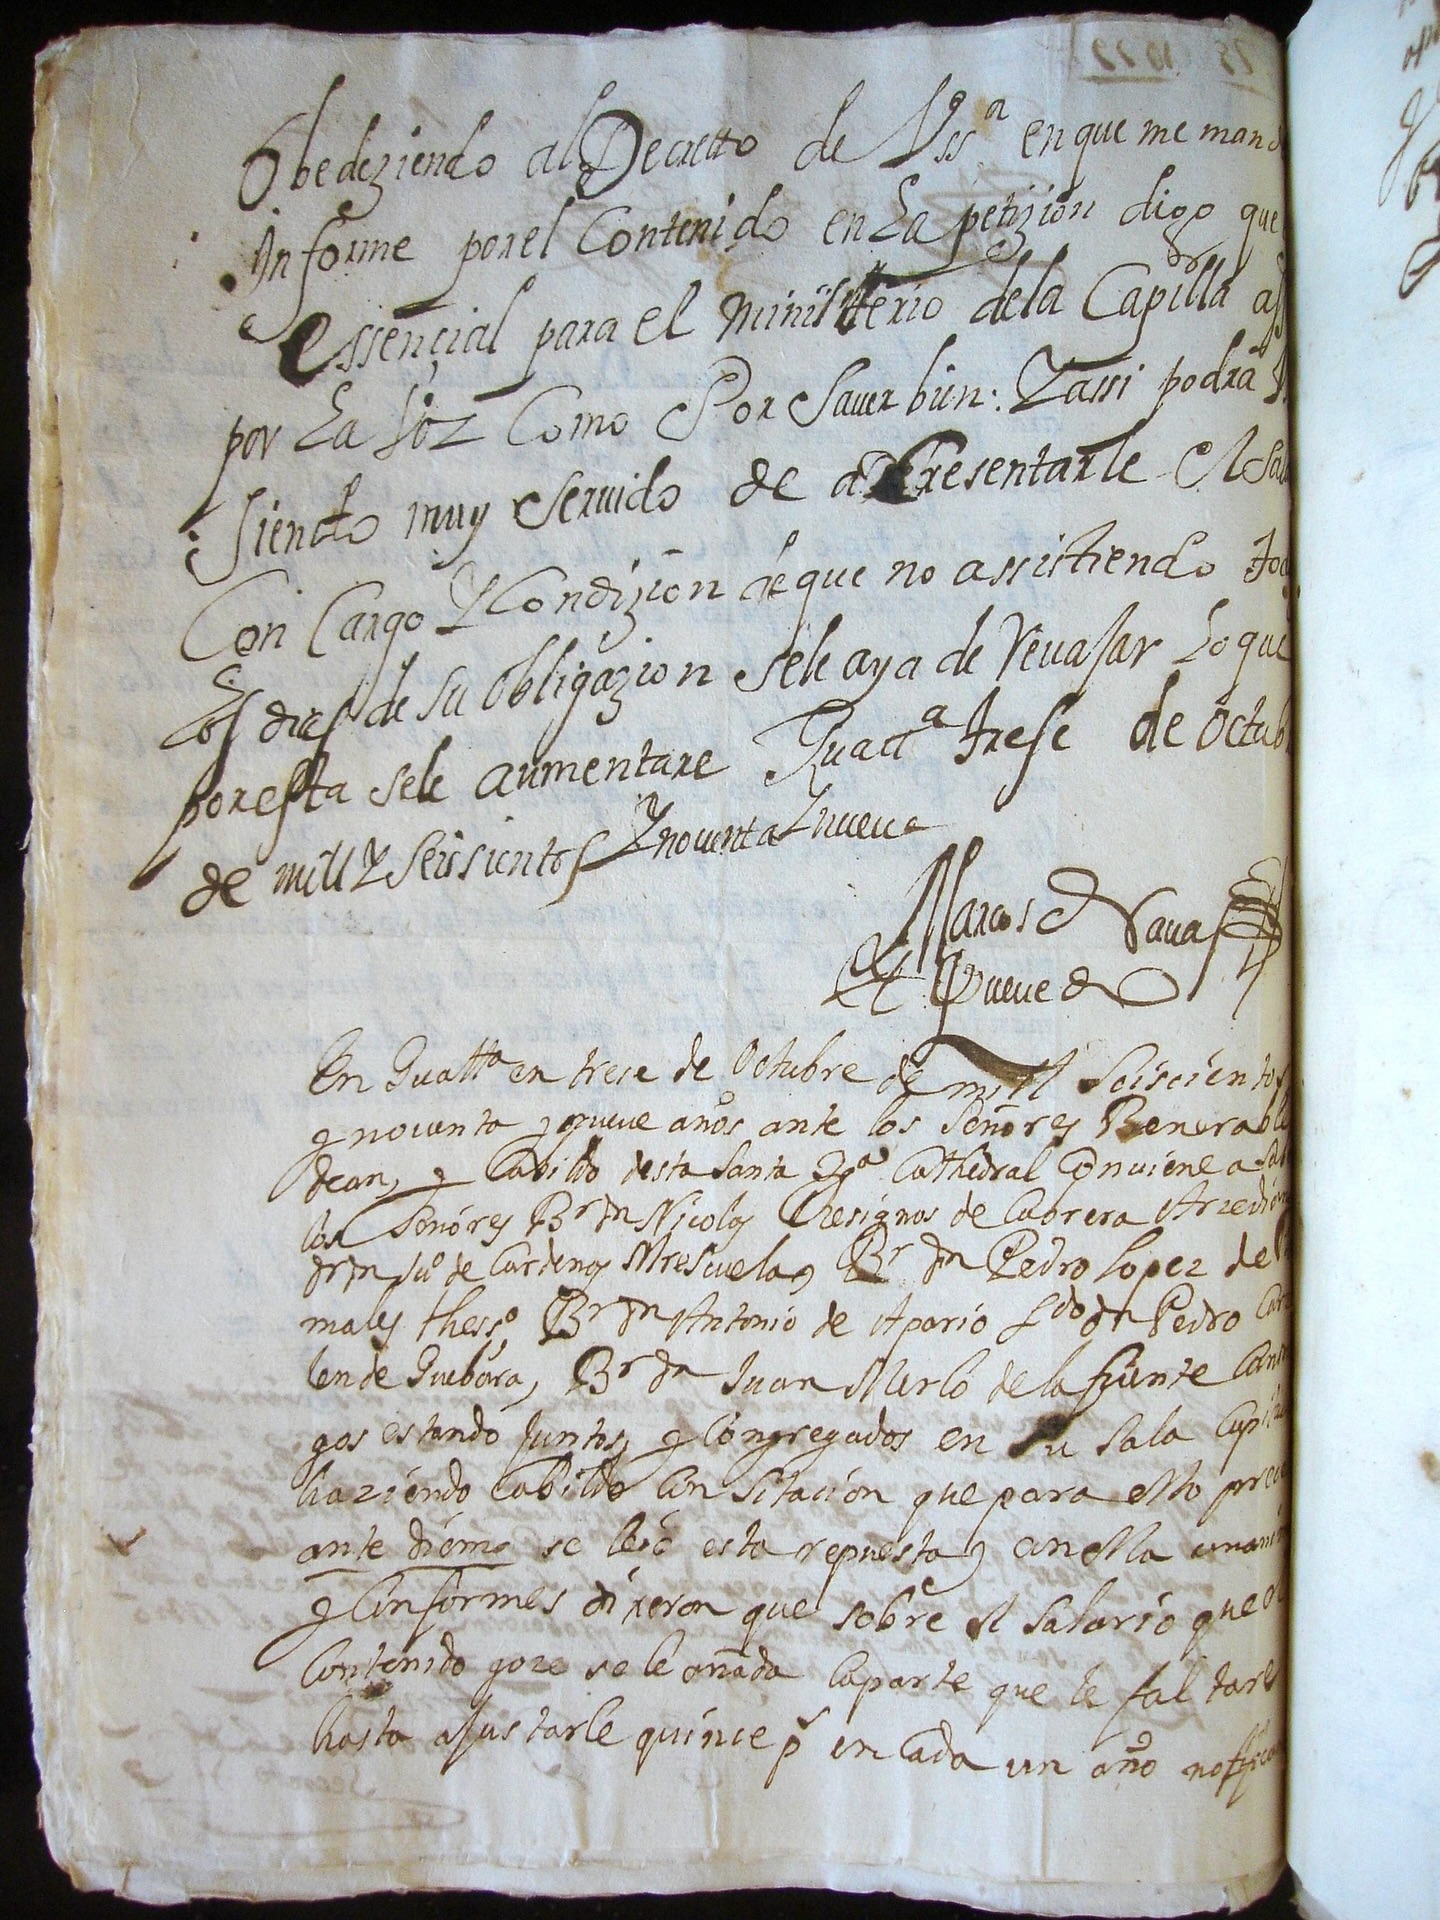 Obedeziendo al Decretto de Vssª en que me mand
Informe por el Contenido en La petizion digo que
essençial para el ministterio de la Capilla ass
por La Voz Como Por Saver bien: Y assi podrá
siendo muy servido de acresentarle el sal
Con Cargo Y Condizion de que no assistiendo tod
Los dias de su obligazion sele aya de revajar Lo que
por esta sele aumentare Guattª trese de octub
de mill Y seissientos Y noventa Y nueve
Marcos de Navas
Quevedo
En Guattª en trese de Octubre de mill seiscientos
y noventa y nueve años ante los Señores Benerable
dean, y Cabildo desta Santa Igª Cathedral Conviene a sab
los Señores Br Dn Nicolas Resignos de Cabrera Arzedia
Dr Dn Juº de Cardenas Mrescuela, Br Dn Pedro Lopez de
males thessº Br Dn Antonio de Aparicio Ldo Dn Pedro Car
len de Guebara, Br Dn Juan Merlo de la fuente Cano
gos estando juntos, y Congregados en su sala Capitu
haziendo Cabildo Con sitacion que para ello prece
ante diem se leió esta repuesta, en ella unani
y Conformes dixeron que sobre el salario que el
Contenido goze se le añada la parte que le faltare
hasta ajustarle quince ps en cada un año